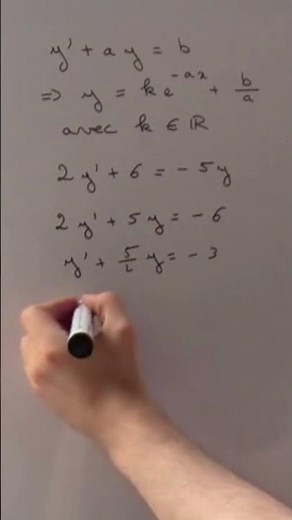 y' + a y = b
⇒ y = k e^{-ax} + b/a
avec k ∈ ℝ
2 y' + 6 = - 5y
2 y' + 5 y = - 6
y' + 5/2 y = - 3